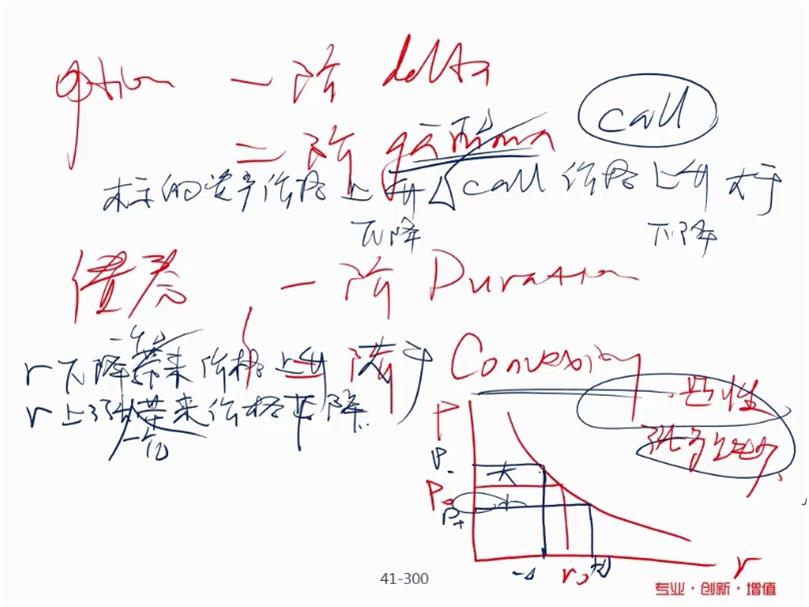 option 一阶 delta
二阶 gamma call
标的资产价格上升 call 价格上升 大于
下降 下降
债券 一阶 Duration
二阶 Convexity
r下降 带来价格上升 大于
r上升 带来价格下降
一定
凸性
涨多跌少
P
P-
P0
P+
大
小
-Δ r0 +Δ r
41-300
专业·创新·增值